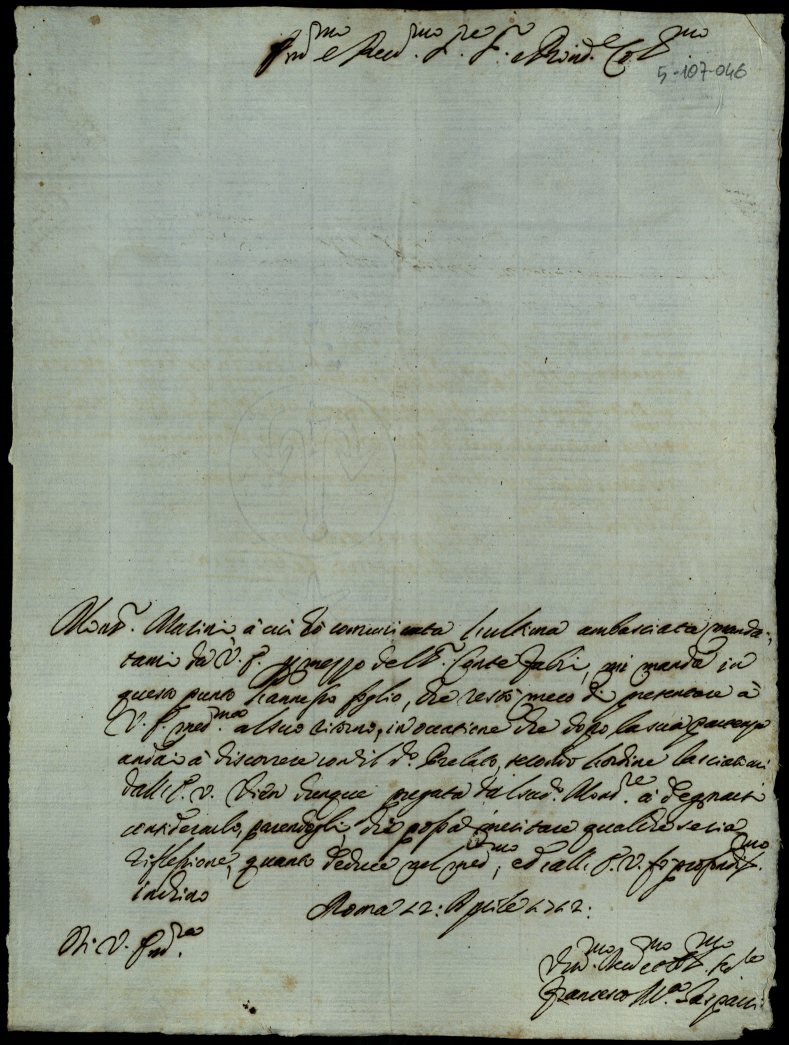 Em.mo e Rev.mo Sig.re Sig.r e Pron.e Co.mo
5-107-046
Mons.r Marini à cui hò comunicata l'ultima ambasciata manda-
tami da V. E. p mezzo del S.r Conte Fabri, mi manda in
questo punto l'annesso foglio, che restò meco di presentare à
V. E. med.ma al suo ritorno, in occasione che dopo la sua partenza
andai à discorrere con il d.o Prelato, secondo l'ordine lasciatomi
dall'E. V. Vien dunque pregata dal sud.o Mons.re à degnarsi
considerarlo, parendogli, che possa meritare qualche seria
riflessione, quanto deduce nel med.mo, ed all'E. V. fo profondiss.mo
inchino
Roma 12: Aprile 1712:
Di V. Em.za
Um.mo Dev.mo et Obl.mo Ser.re
Francesco M.a